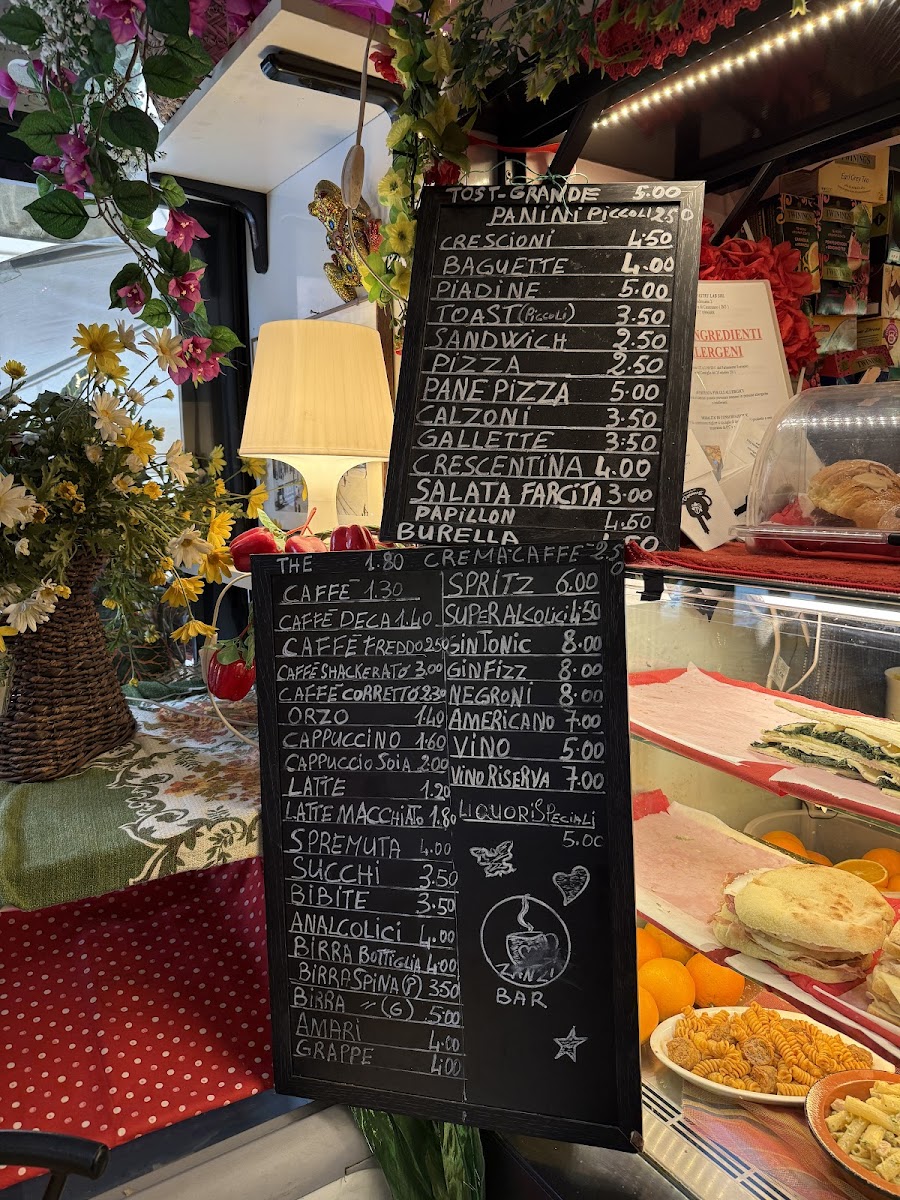 TOST-GRANDE 5.00
PANINI PiccoLi 2.50
CRESCIONI 4.50
BAGUETTE 4.00
PIADINE 5.00
TOAST (PiccoLi) 3.50
SANDWICH 2.50
PIZZA 2.50
PANE PIZZA 5.00
CALZONI 3.50
GALLETTE 3.50
CRESCENTINA 4.00
SALATA FARCITA 3.00
PAPILLON
BURELLA 4.50
THE 1.80 CREMA CAFFE 2,5
CAFFE 1.30
CAFFE DECA 1.40
CAFFE FREDDO 2.50
CAFFE SHACKERATO 3.00
CAFFE CORRETTO 2.30
ORZO 1.40
CAPPUCCINO 1.60
CAPPUCCIO SOIA 2.00
LATTE 1.20
LATTE MACCHIATO 1.80
SPREMUTA 4.00
SUCCHI 3.50
BIBITE 3.50
ANALCOLICI 4.00
BIRRA BOTTIGLIA 4.00
BIRRA SPINA (P) 3.50
BIRRA " (G) 5.00
AMARI 4.00
GRAPPE 4.00
SPRITZ 6.00
SUPERALCOLICI 4.50
GINTONIC 8.00
GINFIZZ 8.00
NEGRONI 8.00
AMERICANO 7.00
VINO 5.00
VINO RISERVA 7.00
LIQUORI SPECIALI
5.00
BAR
TWININGS
INGREDIENTI